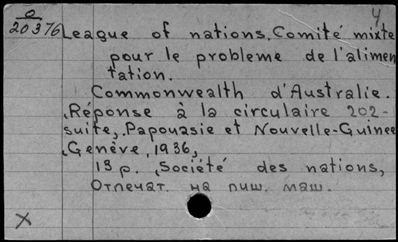 4
0
20376 League of nations. Comité mixte
pour le probleme de l'alimen
tation.
Commonwealth d'Australie.
Réponse à la circulaire 202-
suite, Papouasie et Nouvelle-Guinee
Genève, 1936,
13 p. Société des nations,
Отпечат. на пиш. маш.
X